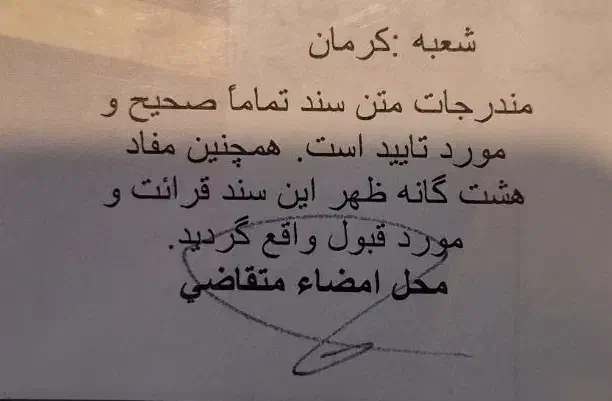 شعبه :کرمان
مندرجات متن سند تماماً صحیح و
مورد تایید است. همچنین مفاد
هشت گانه ظهر این سند قرائت و
مورد قبول واقع گردید.
محل امضاء متقاضي